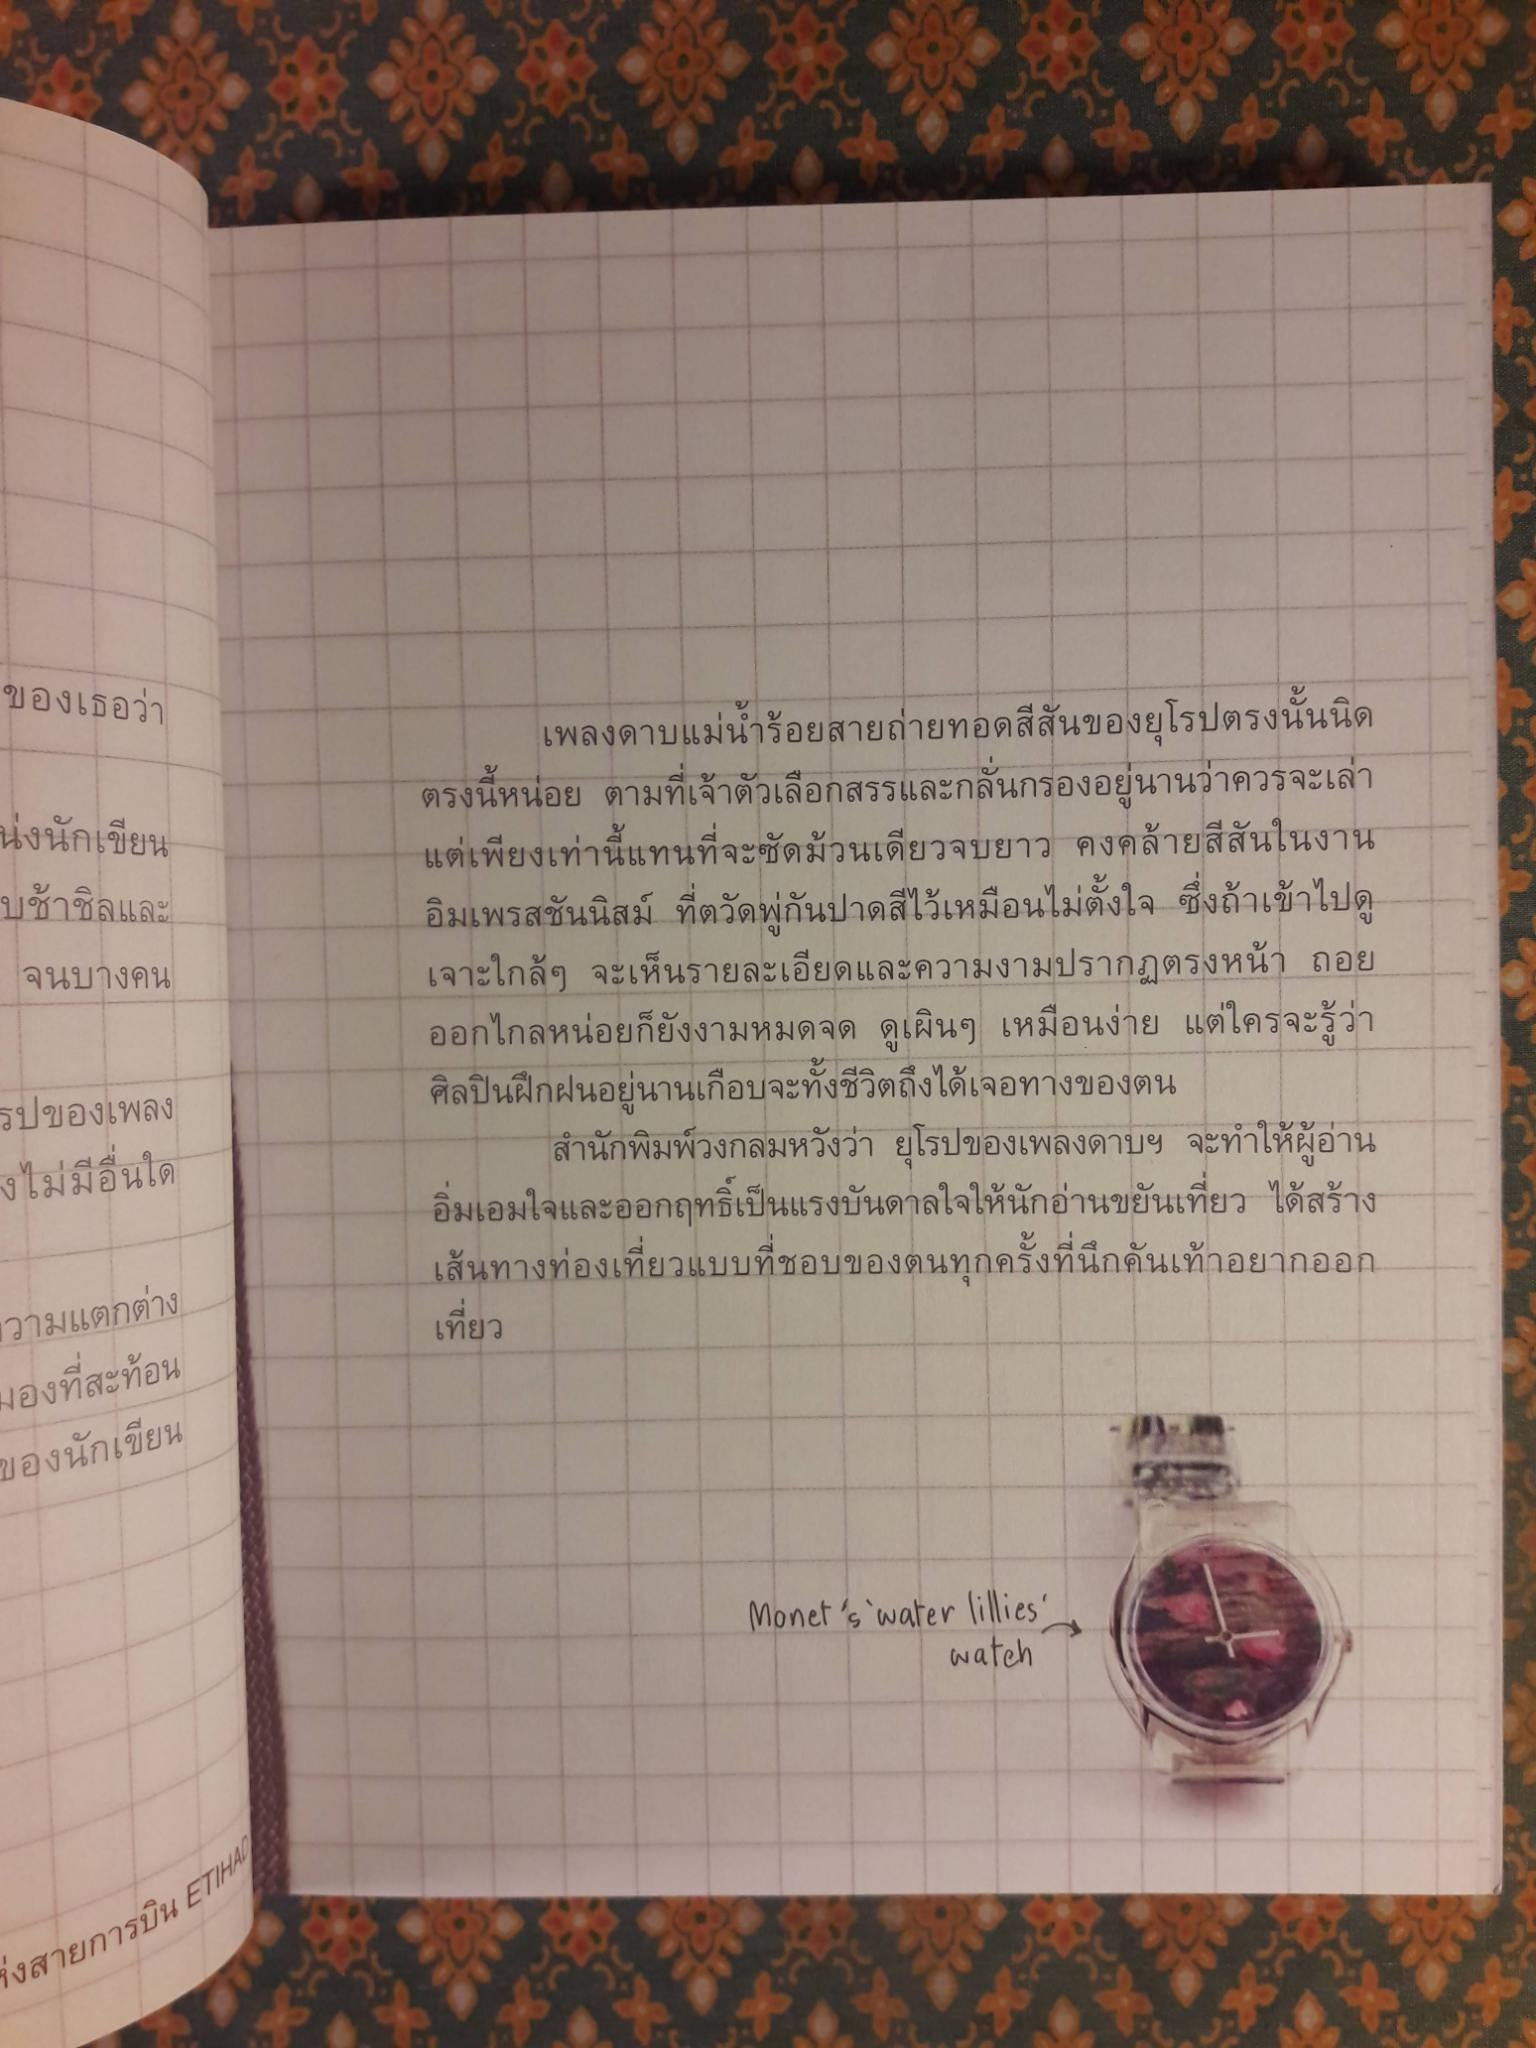 ของเธอว่า
น่งนักเขียน
บช้าชิลและ
จนบางคน
รปของเพลง
งไม่มีอื่นใด
วามแตกต่าง
มองที่สะท้อน
ของนักเขียน
ห่งสายการบิน ETIHAD
เพลงดาบแม่น้ำร้อยสายถ่ายทอดสีสันของยุโรปตรงนั้นนิด
ตรงนี้หน่อย ตามที่เจ้าตัวเลือกสรรและกลั่นกรองอยู่นานว่าควรจะเล่า
แต่เพียงเท่านี้แทนที่จะซัดม้วนเดียวจบยาว คงคล้ายสีสันในงาน
อิมเพรสชันนิสม์ ที่ตวัดพู่กันปาดสีไว้เหมือนไม่ตั้งใจ ซึ่งถ้าเข้าไปดู
เจาะใกล้ๆ จะเห็นรายละเอียดและความงามปรากฏตรงหน้า ถอย
ออกไกลหน่อยก็ยังงามหมดจด ดูเผินๆ เหมือนง่าย แต่ใครจะรู้ว่า
ศิลปินฝึกฝนอยู่นานเกือบจะทั้งชีวิตถึงได้เจอทางของตน
สำนักพิมพ์วงกลมหวังว่า ยุโรปของเพลงดาบฯ จะทำให้ผู้อ่าน
อิ่มเอมใจและออกฤทธิ์เป็นแรงบันดาลใจให้นักอ่านขยันเที่ยว ได้สร้าง
เส้นทางท่องเที่ยวแบบที่ชอบของตนทุกครั้งที่นึกคันเท้าอยากออก
เที่ยว
Monet's 'water lillies'
watch